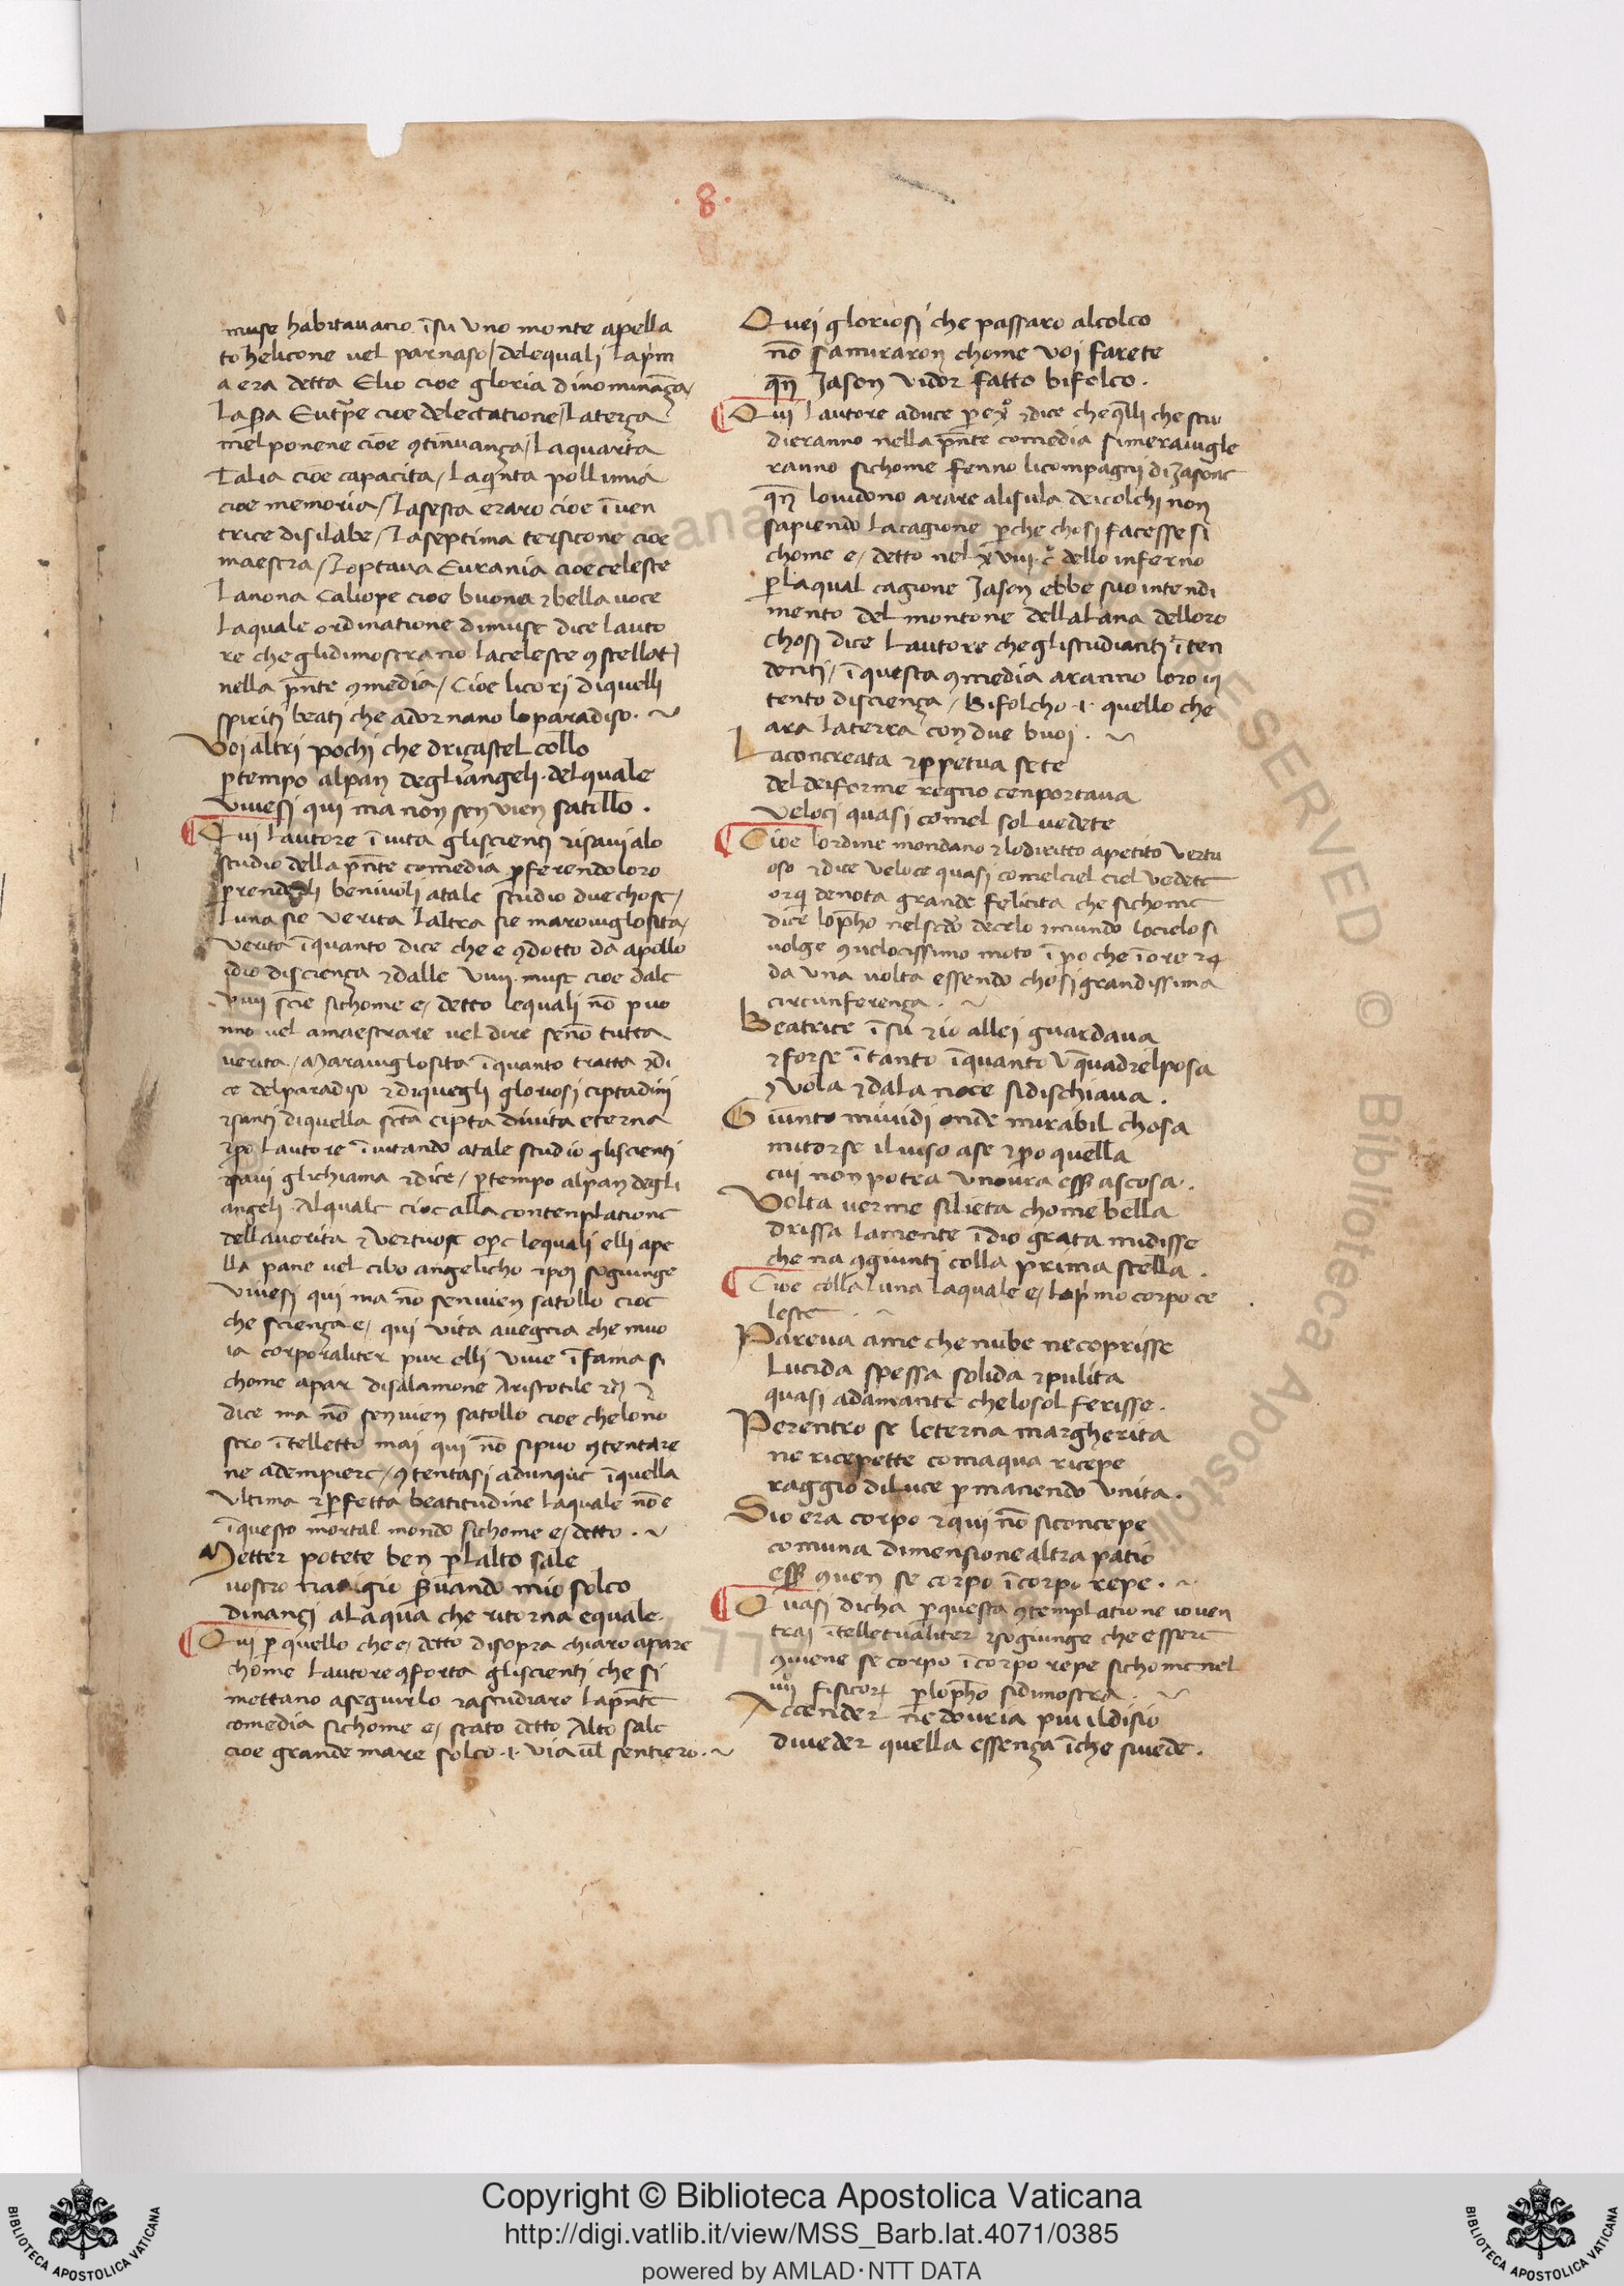 ·8·
muse habitauano ĩsu uno monte apella
to helicone uel parnaso / delequali lap͛m
a era detta Elio cioe gloria dinominãça /
La Eut͛pe cioe delectatione / Laterça
melponene cioe ꝯtinuança / Laquarta
Talia cioe capacita / Laqͥnta pollimia
cioe memoria / Lasesta eraro cioe ĩuen
trice disilabe / Laseptima tersicone cioe
maestra / Loptaua Eurania cioe celeste
Lanona Caliope cioe buona ⁊bella uoce
Laquale ordinatione dimuse dice lauto
re che glidimostrano laceleste ꝯstellat
nella p̃nte ꝯmedia / Cioe licori diquelli
spiriti beati che adornano loparadiso ·
Voi altri pochi che driçastel collo
ꝑtempo alpan degliangeli · delquale
viuesi qui ma non sen vien satollo ·
Qui lautore ĩuita gliscienti ⁊isaui alo
studio della p̃nte comedia ꝓferendoloro
prendegli beniuoli atale studio due chose /
Luna sie verita laltra sie marauiglosita /
verita ĩquanto dice che e ꝯdotto da apollo
idio disciença ⁊dalle viiii muse cioe dale
viiii scĩe sichome e / detto lequali nõ puo
nno uel amaestrare uel dire senõ tutta
verita / Marauiglosita ĩquanto tratta ⁊di
ce delparadiso ⁊diquegli gloriosi ciptadini
⁊santi diquella sctã cipta diuita eterna
⁊ꝑo lautore ĩuitando atale studio gliscienti
⁊saui glichiama ⁊dice / ꝑtempo alpan degli
angeli · Alquale cioe alla contenplatione
dellauerita ⁊vertuose opͤe lequali elli ape
lla pane uel cibo angelicho ⁊poi sogiunge
viuesi qui ma nõ senuien satollo cioe
che sciença e / qui vita auegna che muo
ia corporaliter pur elli viue ĩfama si
chome apar disalamone Aristotile ⁊c
dice ma nõ senuien satollo cioe chelono
stro ĩtelletto mai qui nõ sipuo ꝯtentare
ne adempiere / ꝯtentasi adunque ĩquella
vltima ⁊ꝑfetta beatitudine laquale nõe
ĩquesto mortal mondo sichome e / detto ·
Metter potete ben ꝑlalto sale
uostro nauigio ꝓuando mio solco
dinançi alaqua che ritorna equale ·
Qui ꝑ quello che e / detto disopra chiaro apare
chome lautore ꝯforta gliscienti che si
mettano aseguirlo ⁊astudiare lap̃nte
comedia sichome e / stato detto Alto sale
cioe grande mare solco ·i· via ul̃ sentiero ·
Quei gloriosi che passaro alcolco
nõ samuraron chome voi farete
qñ Jason vidor fatto bifolco ·
Qui lautore aduce ꝑ ex͛o ⁊dice che q̃lli che stu
dieranno nella p̃nte comedia simerauigle
ranno sichome fenno licompagni di Jasone
qñ louidono arare alisula deicolchi non
sapiendo lacagione ꝑche chosi facesse si
chome e / detto nel xviii · c͛ dello inferno
ꝑlaqual cagione Jason ebbe suo intendi
mento del montone dellalana delloro
chosi dice lautore che glistudianti ĩten
denti / ĩquesta ꝯmedia aranno loro in
tento disciença / Bifolcho ·i· quello che
ara laterra con due buoi ·
Laconcreata ⁊ꝑpetua sete
deldeiforme regno cenportaua
veloci quasi comel sol uedete
Cioe lordine mondano ⁊lodiritto apetito vertu
oso ⁊dice veloce quasi comelciel ciel vedete
orqͥ denota grande felicita che sichome
dice lopħo nelscd̃o decelo ⁊mundo locielo si
uolge ꝯuelocissimo moto ĩ ꝑo che ĩore 24
da una uolta essendo chosi grandissima
circunferença ·
Beatrice ĩsu ⁊io allei guardaua
⁊forse ĩtanto ĩquanto v̄quadrelposa
⁊vola ⁊dala noce sidischiaua ·
Giunto miuidi onde mirabil chosa
mitorse iluiso ase ⁊ꝑo quella
cui non potea vnoura eẜẜ ascosa ·
Volta uerme silieta chome bella
drissa lamente ĩdio grata midisse
che na ꝯgiunti colla prima stella ·
Cioe colla luna laquale e / lop͛mo corpo ce
leste ·
Pareua ame che nube necoprisse
Lucida spessa solida ⁊pulita
quasi adamante chelosol ferisse ·
Perentro se leterna margherita
ne ricepette comaqua ricepe
raggio diluce ꝑmanendo vnita ·
Sio era corpo ⁊qui nõ siconcepe
comuna dimensione altra patio
eẜẜ ꝯuen se corpo ĩcorpo repe ·
Quasi dicha ꝑquesta ꝯtemplatione iouen
trai ĩtelletualiter ⁊sogiunge che essere
ꝯuiene se corpo ĩcorpo repe sichome nel
iiii fisicoꝝ ꝑlopħo sidimostra ·
Accender ne douria piu ildisio
diueder quella essença ĩche siuede ·
Copyright © Biblioteca Apostolica Vaticana
http://digi.vatlib.it/view/MSS_Barb.lat.4071/0385
powered by AMLAD·NTT DATA
BIBLIOTECA APOSTOLICA VATICANA
BIBLIOTECA APOSTOLICA VATICANA